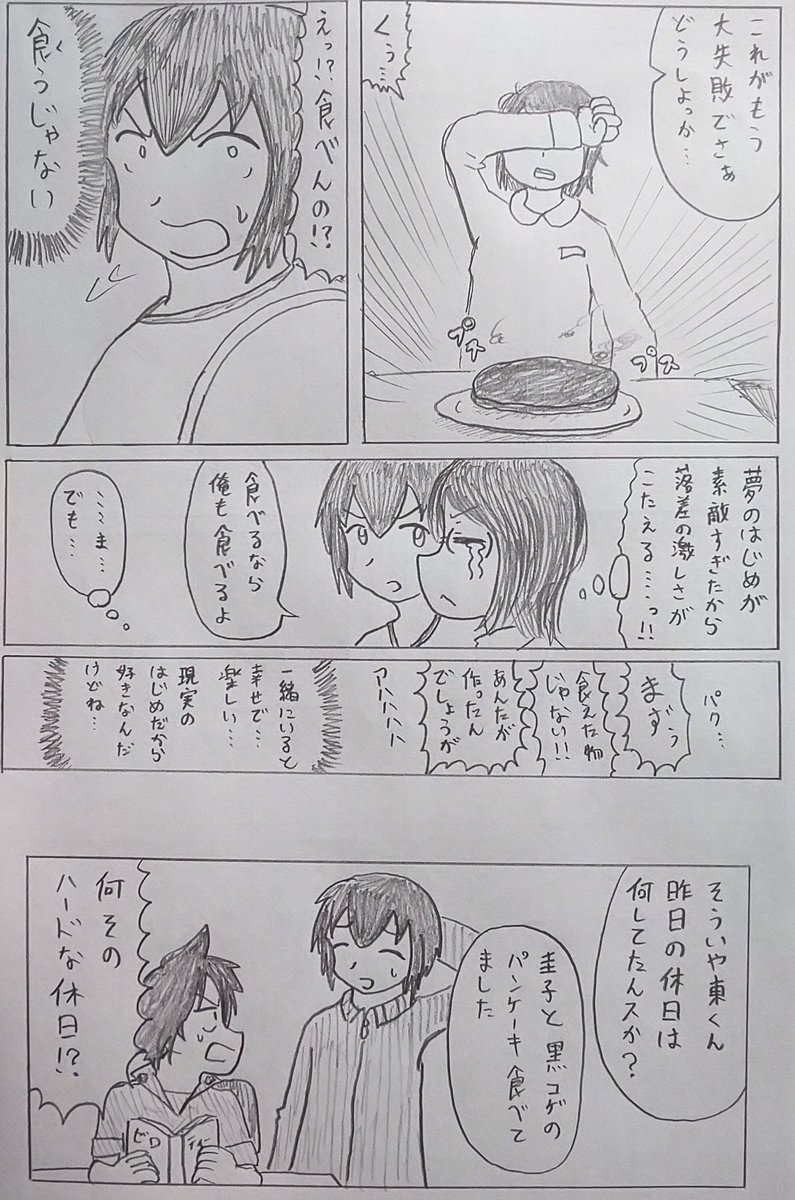 これがもう
大失敗でさぁ
どうしよっか…
くぅ…
プス
プス
えっ!?食べんの!?
食うじゃない
夢のはじめが
素敵すぎたから
落差の激しさが
こたえる……っ!!
食べるなら
俺も食べるよ
……ま…
でも…
パク…
まずぅ
食えた物
じゃない!!
あんたが
作ったん
でしょうが
アハハハハ
一緒にいると
幸せで…
楽しい…
現実の
はじめだから
好きなんだ
けどね…
そういや東くん
昨日の休日は
何してたんスか?
圭子と黒コゲの
パンケーキ食べて
ました
何その
ハードな休日!?